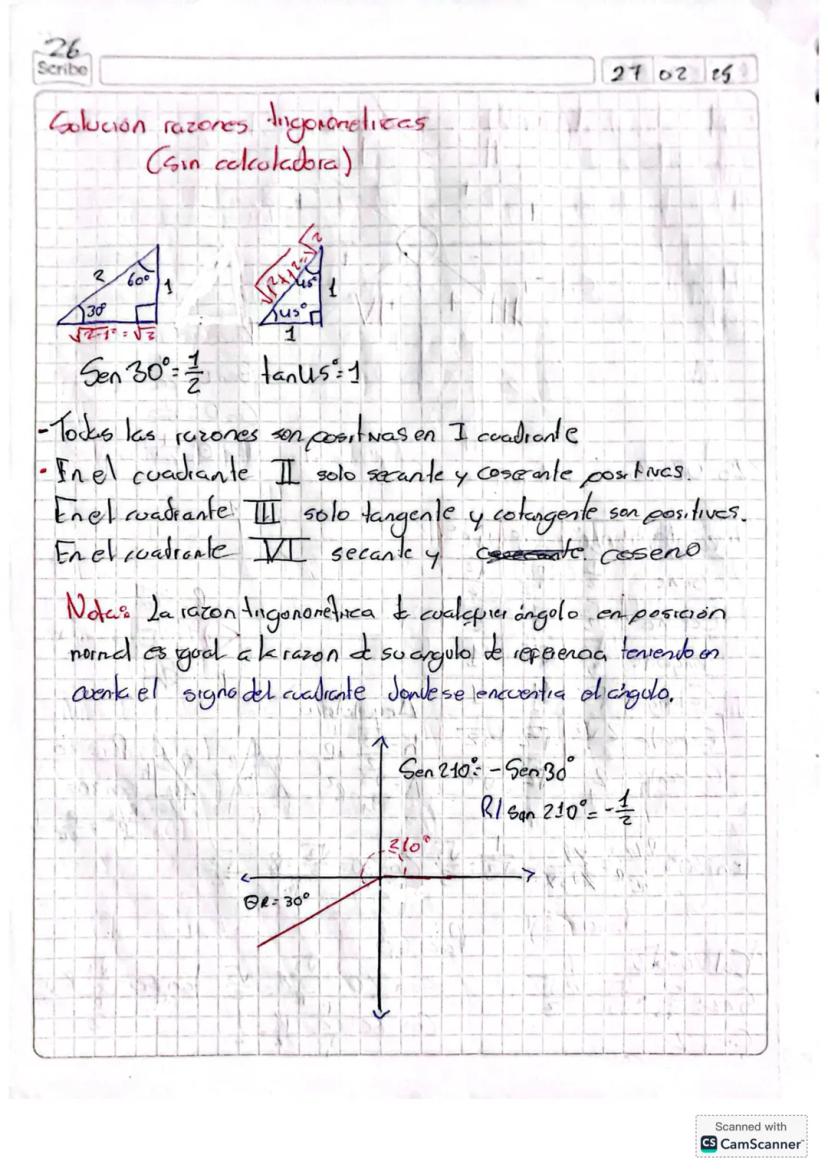 26
Scribe
27 02 25
Solución razones trigonometricas
(sin calculadora)
2 60° 1
30°
√2-1² = √3
√1²+1² = √2
45° 1
45°
1
Sen 30° = 1/2 tan 45° = 1
- Todas las razones son positivas en I cuadrante
• En el cuadrante II solo secante y cosecante positivas.
En el cuadrante III solo tangente y cotangente son positivas.
En el cuadrante VI secante y coseno
Nota: La razon trigonométrica de cualquier ángulo en posición
normal es igual a la razon de su angulo de referencia teniendo en
cuenta el signo del cuadrante donde se encuentra el ángulo.
Sen 210° = - Sen 30°
R/ Sen 210° = - 1/2
210°
θR = 30°
Scanned with
CS CamScanner